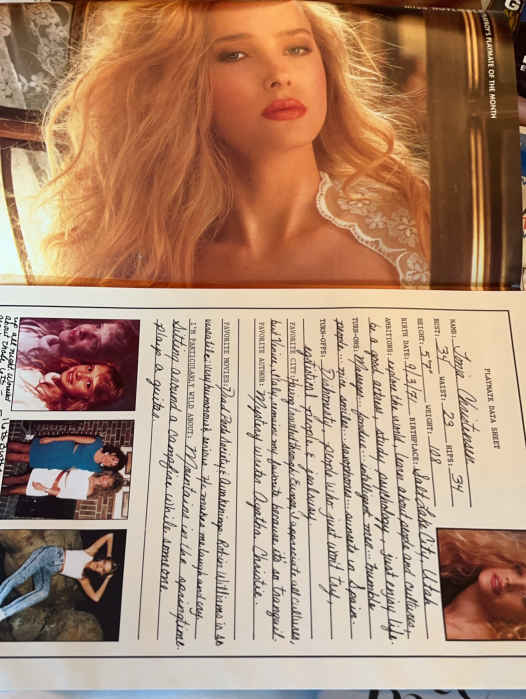 PLAYMATE OF THE MONTH
PLAYMATE DATA SHEET
NAME: Tonja Christensen
BUST: 34 WAIST: 23 HIPS: 34
HEIGHT: 5'7" WEIGHT: 108
BIRTH DATE: 9/3/71 BIRTHPLACE: Salt Lake City, Utah
AMBITIONS: explore the world, learn about people and cultures,
be a good actress, study psychology + just enjoy life.
TURN-ONS: Museums, fondue... intelligent men... humble
people... nice smiles... saxophones... sunsets in Spain.
TURN-OFFS: Dishonesty, people who just won't try,
egotistical people & jealousy.
FAVORITE CITY: Having traveled through Europe, I appreciate all cultures,
but Venice, Italy, remains my favorite because it's so tranquil.
FAVORITE AUTHOR: Mystery writer Agatha Christie.
FAVORITE MOVIES: Dead Poets Society & Awakenings. Robin Williams is so
versatile: Very humorous & serious. He makes me laugh and cry.
I'M PARTICULARLY WILD ABOUT: Mountains in the springtime.
Sitting around a campfire while someone
plays a guitar.
up all night
about